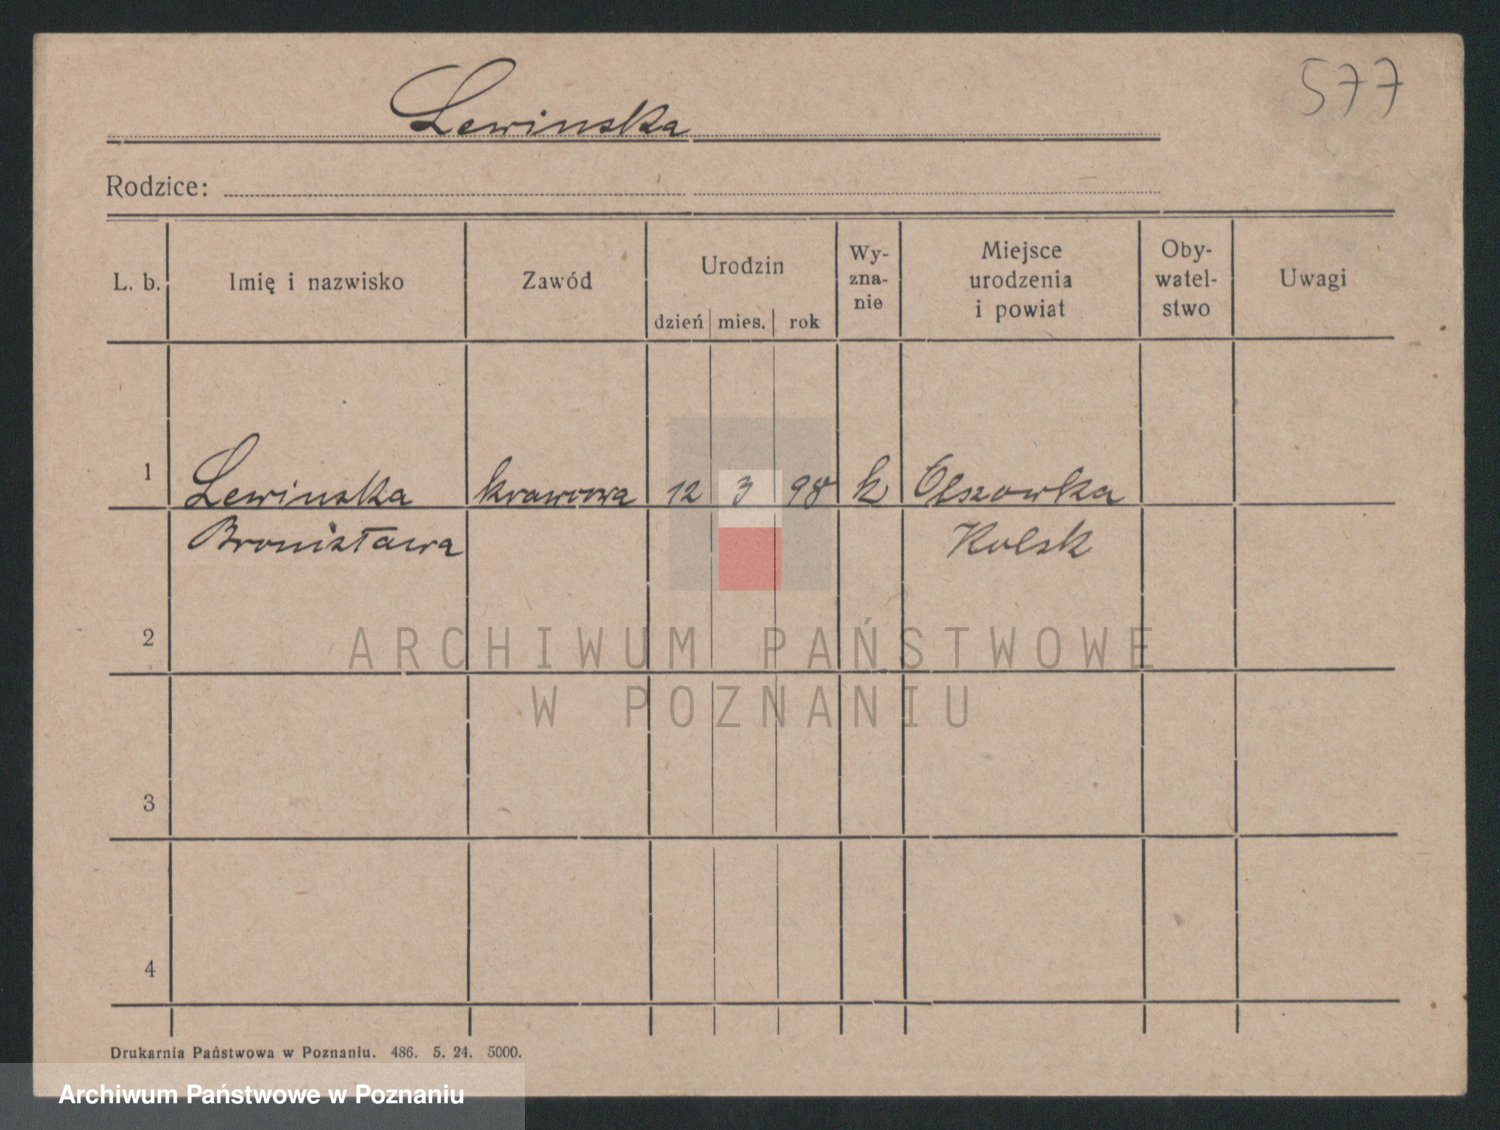 577
Lewinska
Rodzice:
L. b. Imię i nazwisko Zawód Urodzin dzień mies. rok Wy-zna-nie Miejsce urodzenia i powiat Oby-watel-stwo Uwagi
1 Lewinska krawcowa 12 3 98 k Olszowka
Bronisława Kolsk
2
ARCHIWUM PAŃSTWOWE
W POZNANIU
3
4
Drukarnia Państwowa w Poznaniu. 486. 5. 24. 5000.
Archiwum Państwowe w Poznaniu